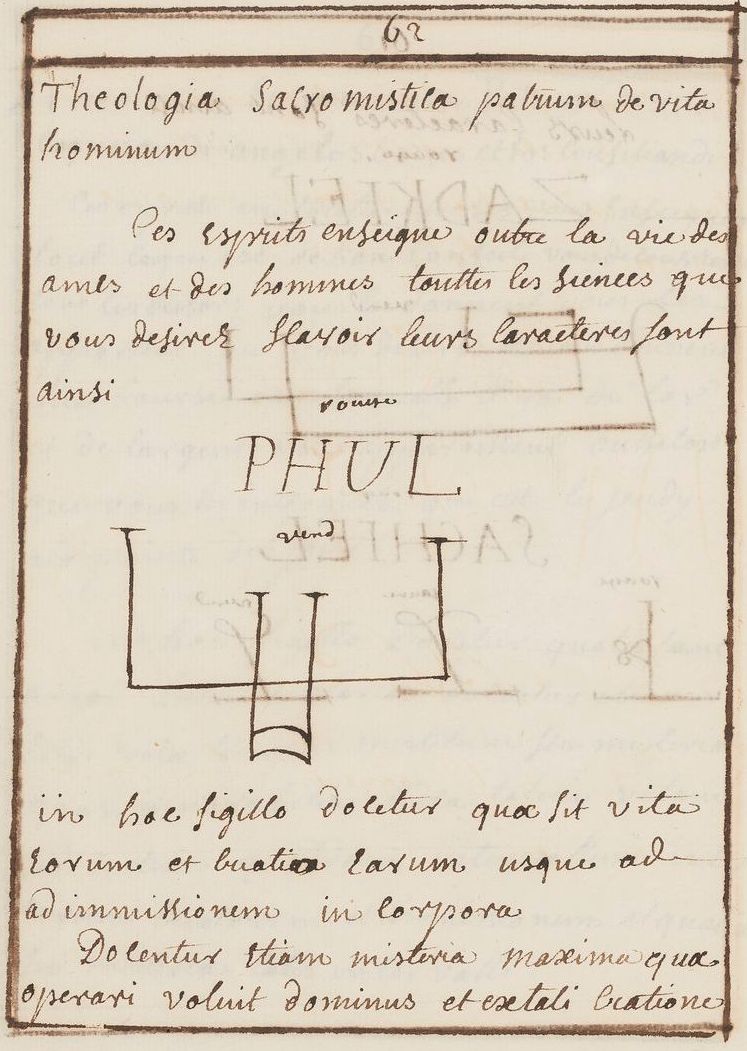 62
Theologia Sacro mistica patrum de vita
hominum
Ces esprits enseigne outre la vie des
ames et des hommes touttes les siences que
vous desirez scavoir leurs caracteres sont
ainsi
rouge
PHUL
verd
in hoc sigillo docetur quæ sit vita
eorum et earum usque ad
ad immissionem in corpora
Docentur etiam misteria maxima quæ
operari voluit dominus et ex tali creatione